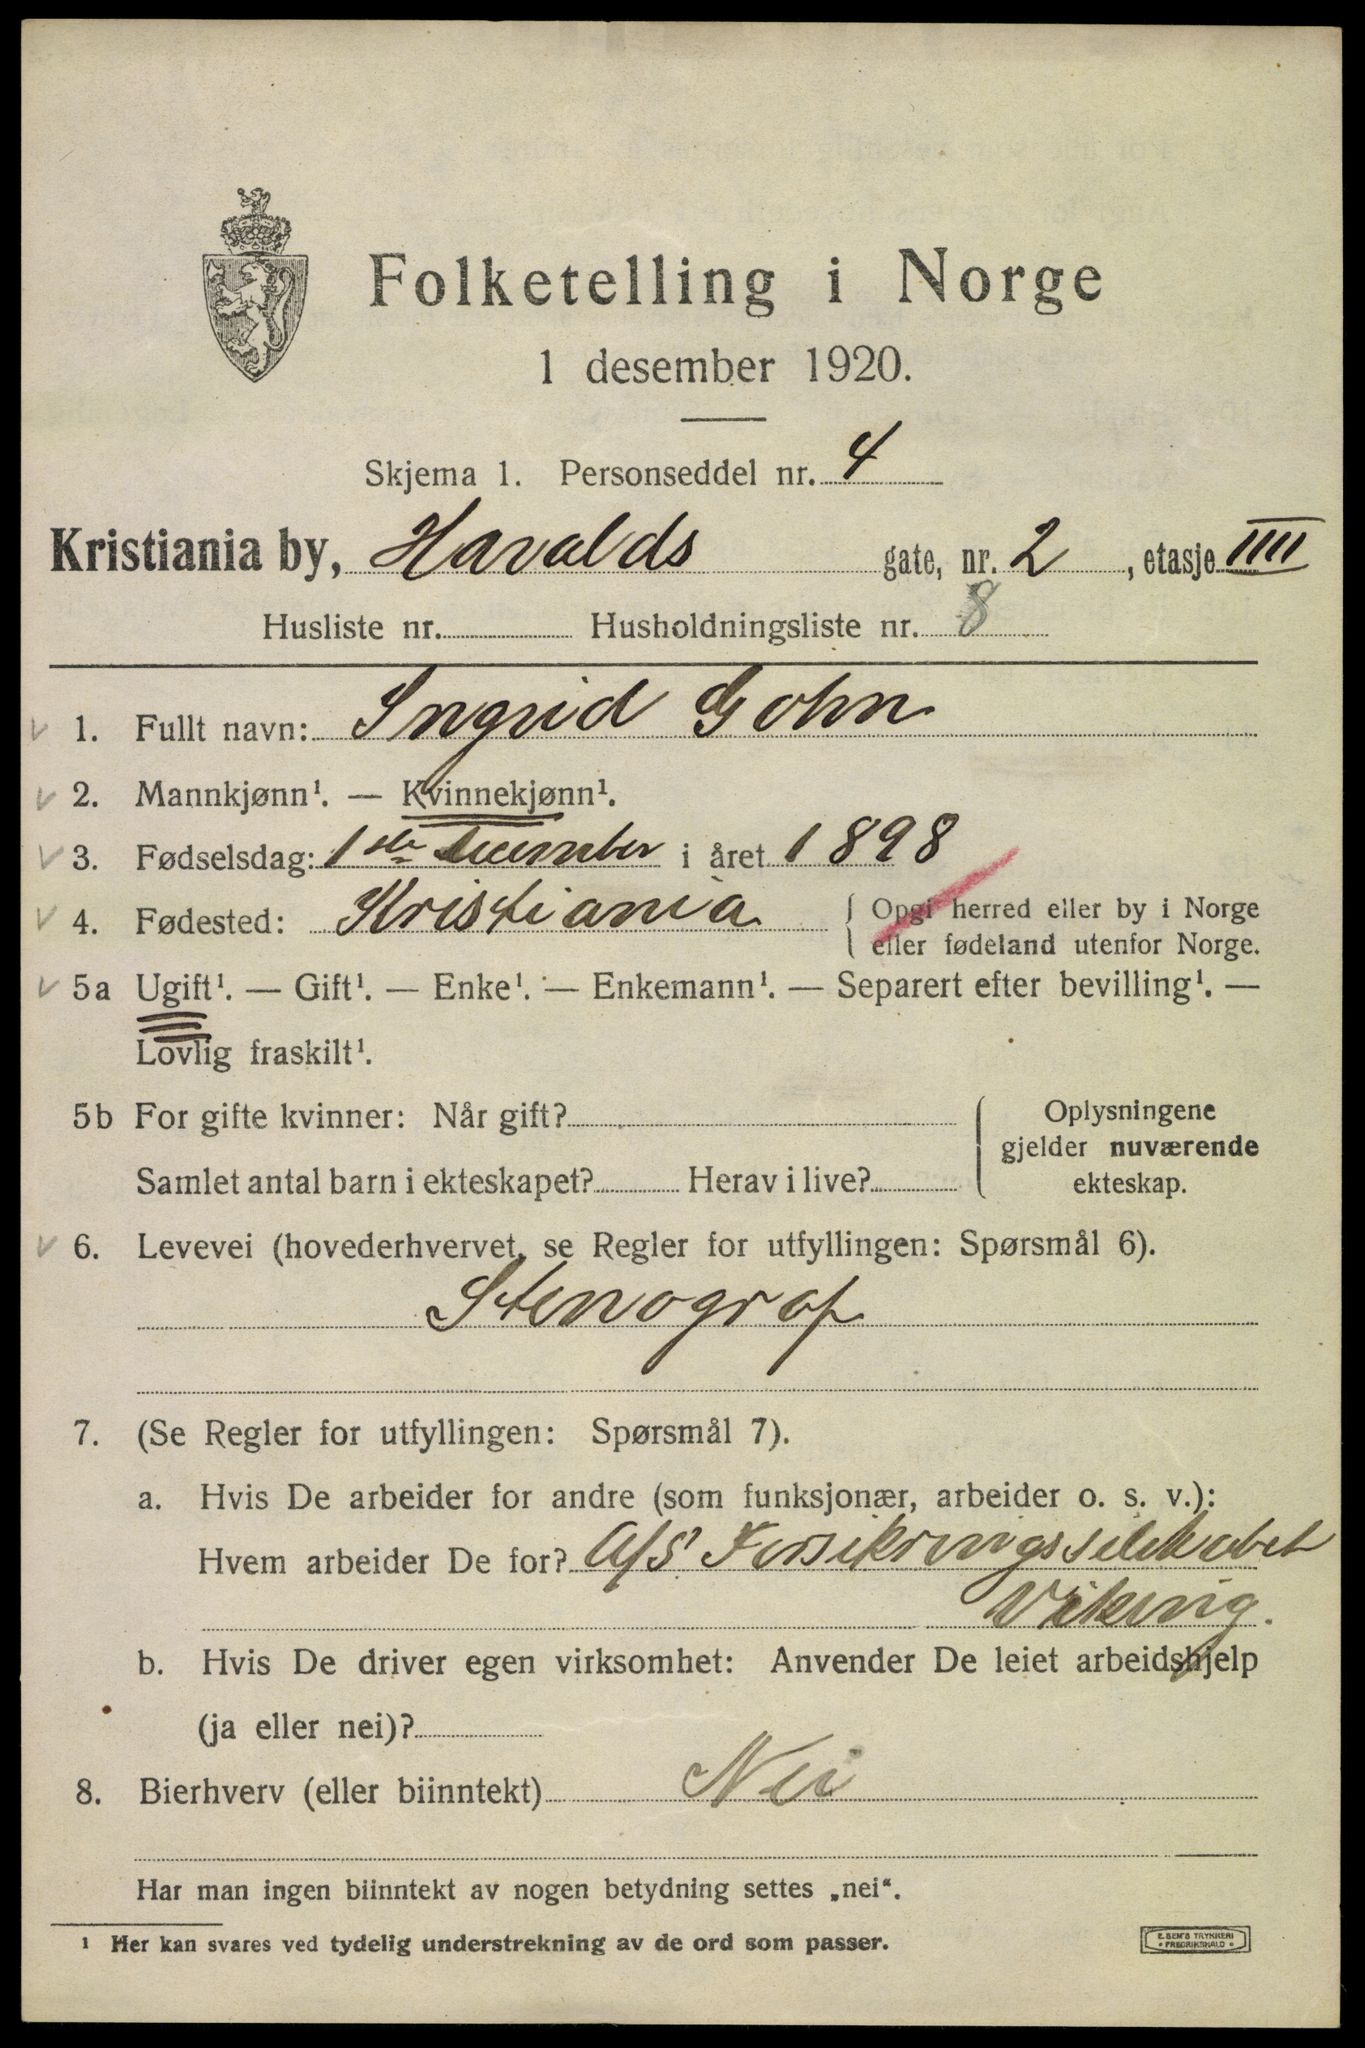 Folketelling i Norge
1 desember 1920.
Skjema 1. Personseddel nr. 4
Kristiania by, Haralds gate, nr. 2, etasje IIII
Husliste nr. Husholdningsliste nr. 8
1. Fullt navn: Ingrid Gohn
2. Mannkjønn¹. — Kvinnekjønn¹.
3. Fødselsdag: 1ste December i året 1898
4. Fødested: Kristiania { Opgi herred eller by i Norge
eller fødeland utenfor Norge.
5a Ugift¹. — Gift¹. — Enke¹. — Enkemann¹. — Separert efter bevilling¹. —
Lovlig fraskilt¹.
5b For gifte kvinner: Når gift? { Oplysningene
gjelder nuværende
Samlet antal barn i ekteskapet? Herav i live? ekteskap.
6. Levevei (hovederhvervet, se Regler for utfyllingen: Spørsmål 6).
Stenograf
7. (Se Regler for utfyllingen: Spørsmål 7).
a. Hvis De arbeider for andre (som funksjonær, arbeider o. s. v.):
Hvem arbeider De for? A/S Forsikringsselskabet
Viking.
b. Hvis De driver egen virksomhet: Anvender De leiet arbeidshjelp
(ja eller nei)?
8. Bierhverv (eller biinntekt) Nei
Har man ingen biinntekt av nogen betydning settes „nei“.
¹ Her kan svares ved tydelig understrekning av de ord som passer.
E. SEM'S TRYKKERI
• FREDRIKSHALD •